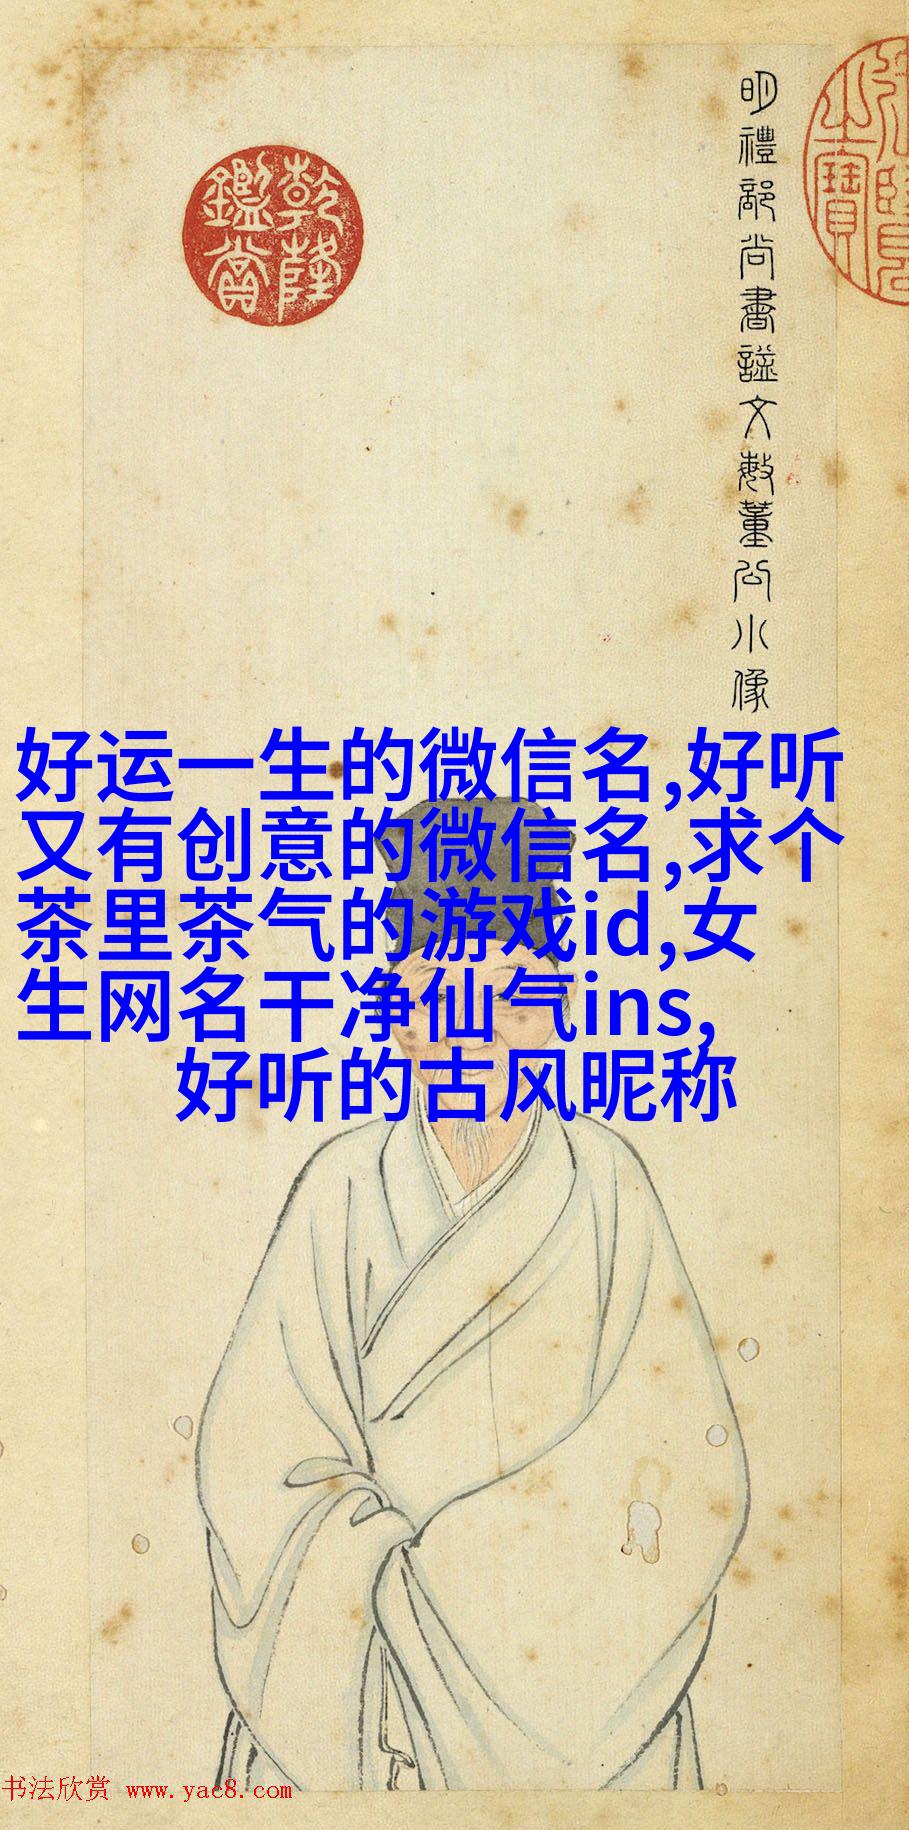 明禮部尚書謚文敏董公小像
乾隆
鑑賞
好运一生的微信名,好听
又有创意的微信名,求个
茶里茶气的游戏id,女
生网名干净仙气ins,
好听的古风昵称
书法欣赏 www.yac8.com